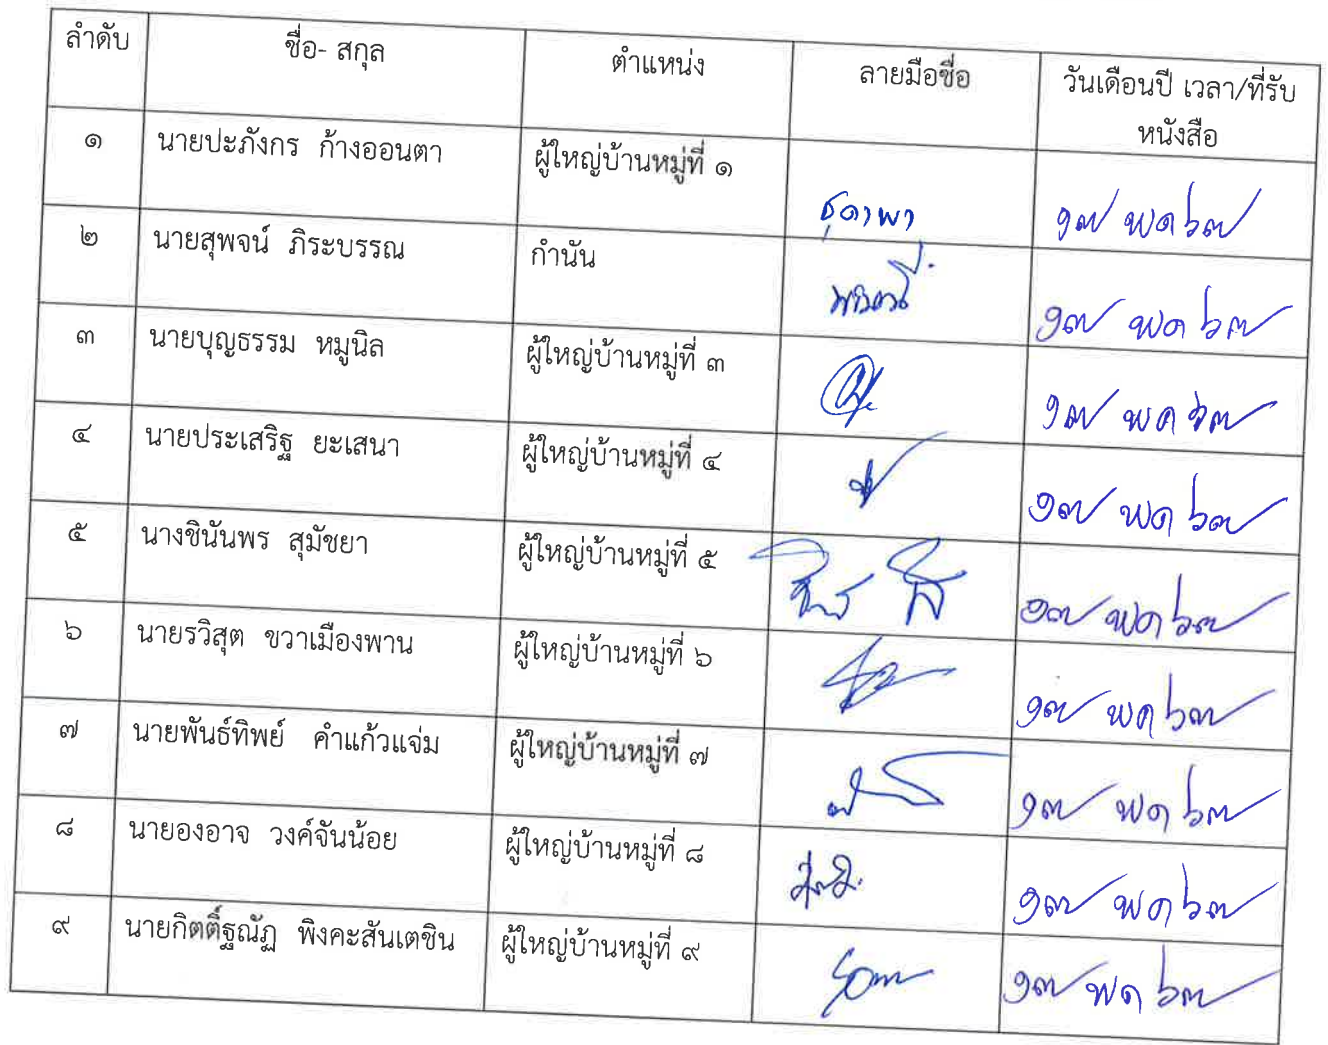 ลำดับ ชื่อ- สกุล ตำแหน่ง ลายมือชื่อ วันเดือนปี เวลา/ที่รับ
หนังสือ
๑ นายปะภังกร ก้างออนตา ผู้ใหญ่บ้านหมู่ที่ ๑ ๑๗ พค ๖๗
๒ นายสุพจน์ ภิระบรรณ กำนัน ๑๗ พค ๖๗
๓ นายบุญธรรม หมูนิล ผู้ใหญ่บ้านหมู่ที่ ๓ ๑๗ พค ๖๗
๔ นายประเสริฐ ยะเสนา ผู้ใหญ่บ้านหมู่ที่ ๔ ๑๗ พค ๖๗
๕ นางชินันพร สุมัชยา ผู้ใหญ่บ้านหมู่ที่ ๕ ๑๗ พค ๖๗
๖ นายรวิสุต ขวาเมืองพาน ผู้ใหญ่บ้านหมู่ที่ ๖ ๑๗ พค ๖๗
๗ นายพันธ์ทิพย์ คำแก้วแจ่ม ผู้ใหญ่บ้านหมู่ที่ ๗ ๑๗ พค ๖๗
๘ นายองอาจ วงค์จันน้อย ผู้ใหญ่บ้านหมู่ที่ ๘ ๑๗ พค ๖๗
๙ นายกิตติ์ฐณัฏ พิงคะสันเตชิน ผู้ใหญ่บ้านหมู่ที่ ๙ ๑๗ พค ๖๗